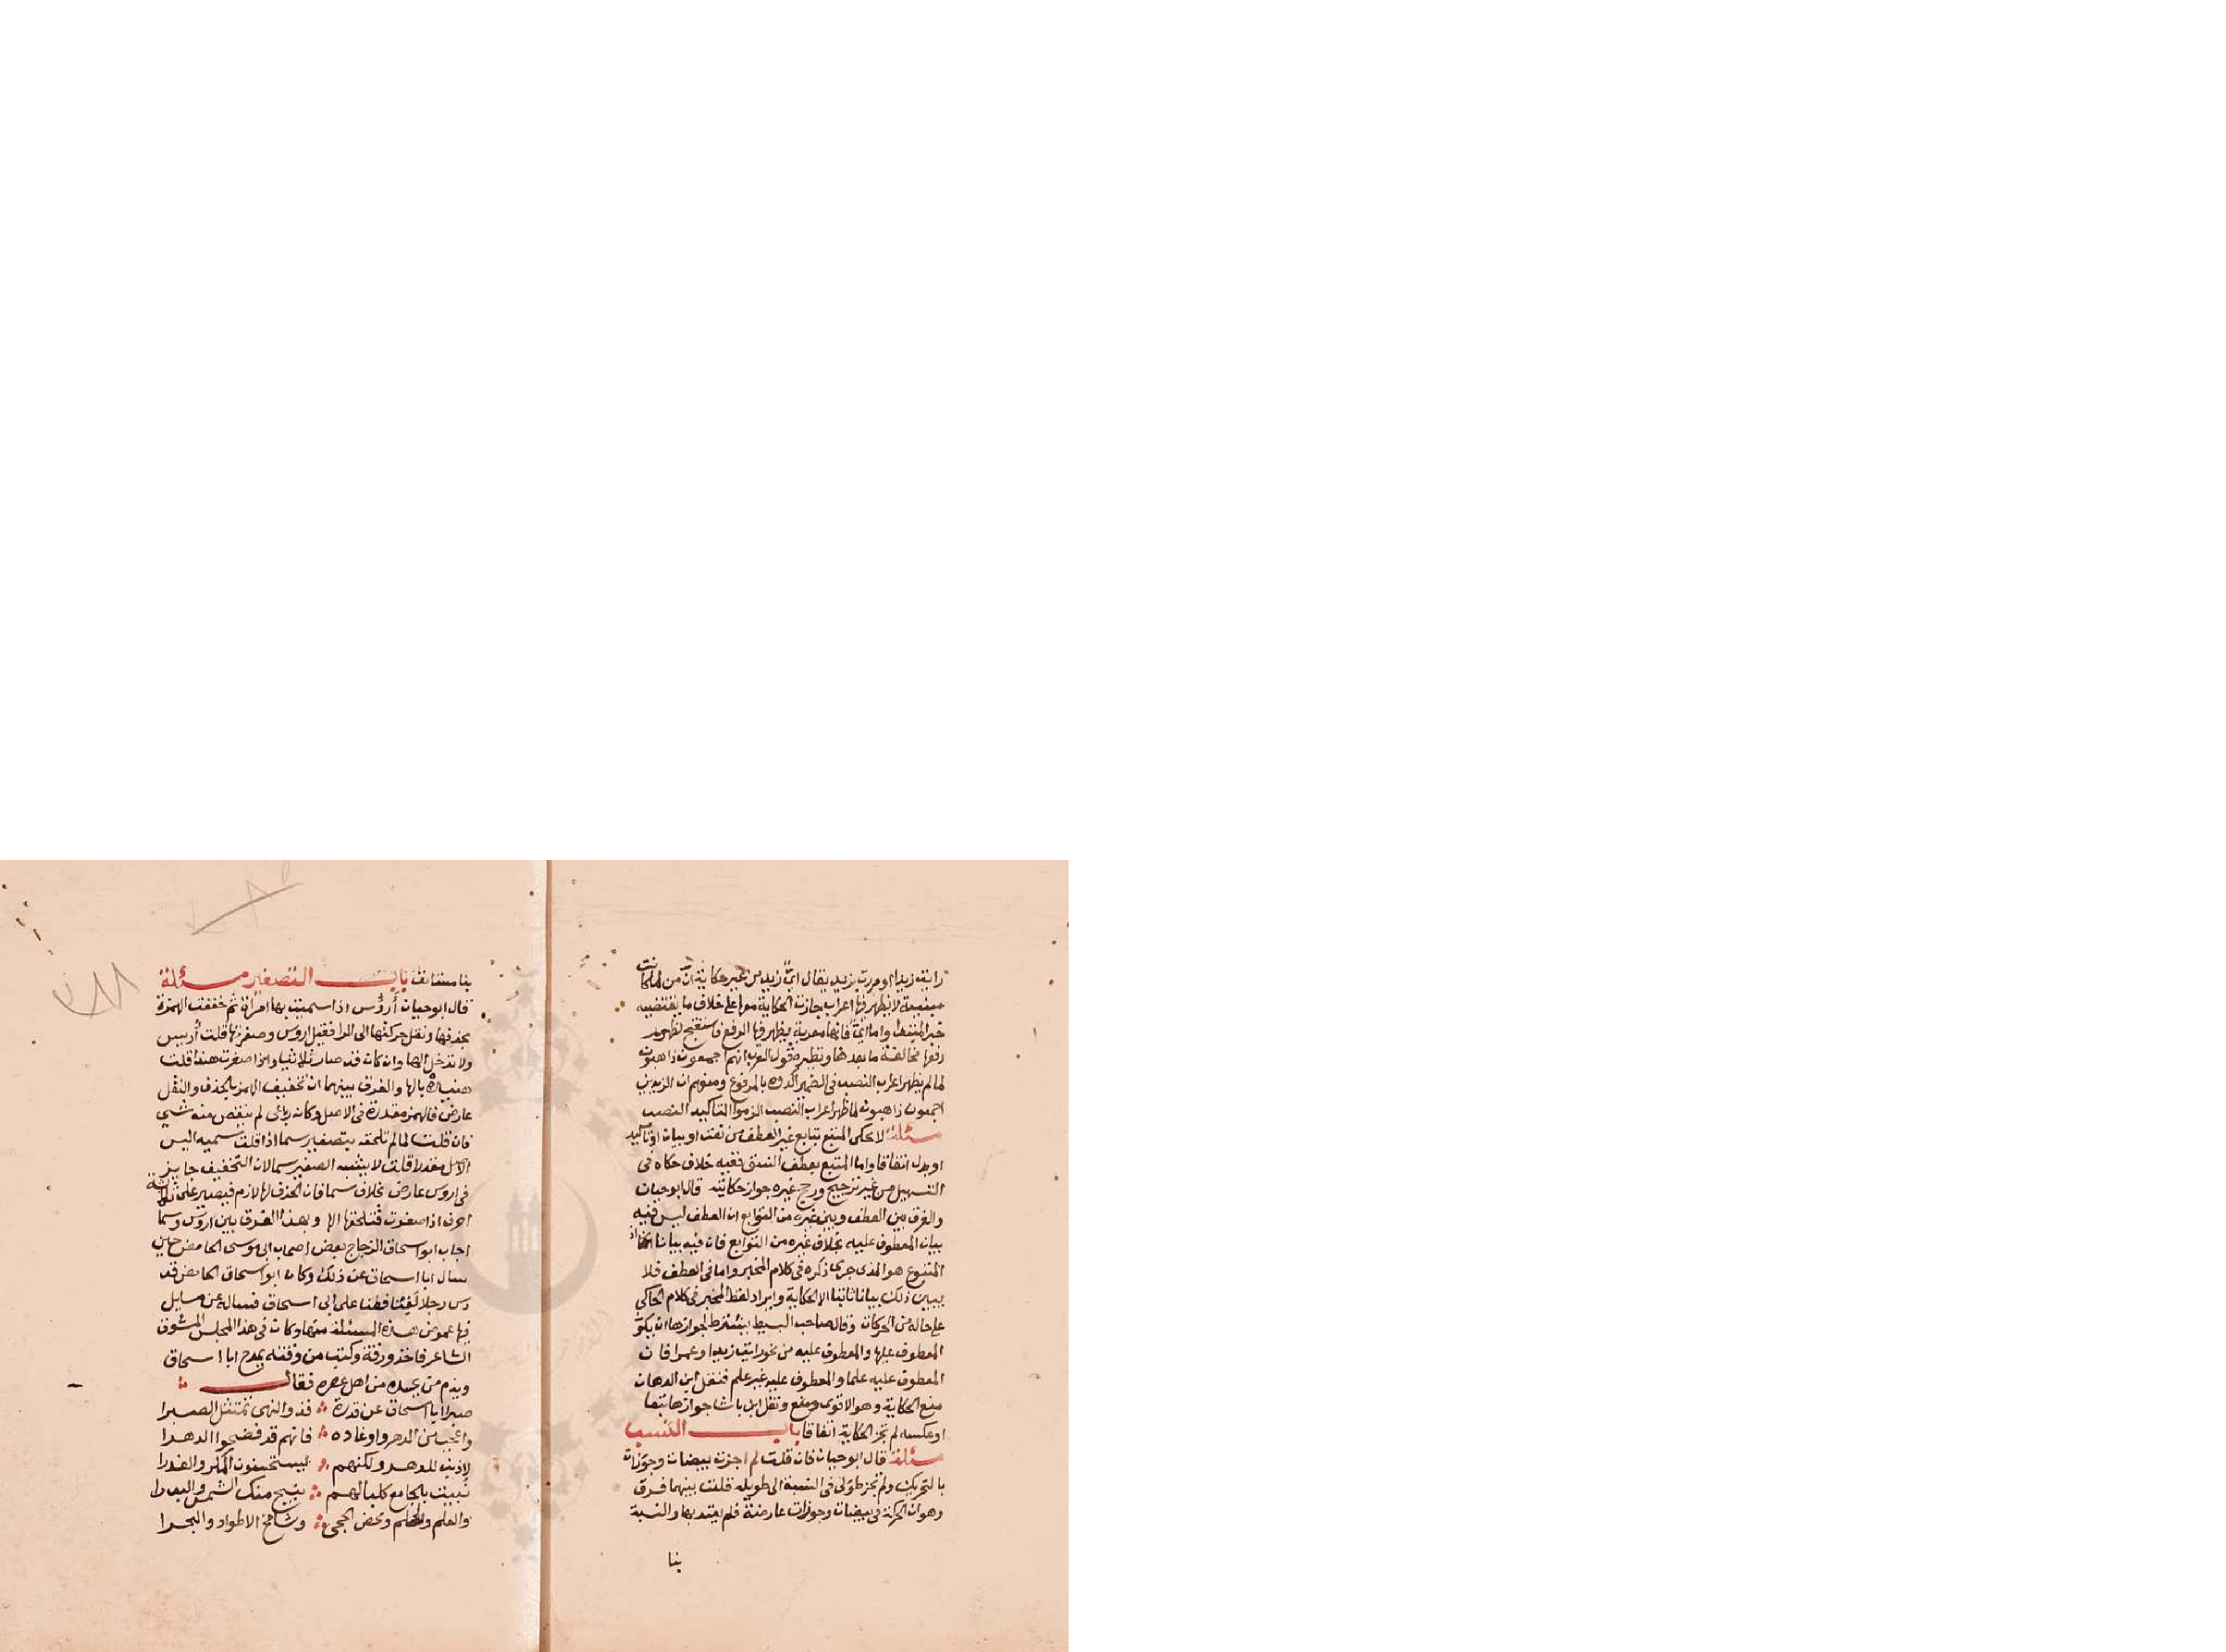 رايت زيدا او مررت بزيد يقال ايّ زيد من غير حكاية انّ من لما كانت
مبنية لا يظهر فيها اعراب جازت الحكاية معها على خلاف ما يقتضيه
خبر المبتدا واما ايّ فانها معربة يظهر فيها الرفع فاستقبح لظهور
رفعها مخالفة ما بعدها ونظيره قول العرب انهم اجمعون ذاهبون
لما لم يظهر اعراب النصب في الضمير اكدوه بالمرفوع ومنهم ان الزيدين
اجمعون ذاهبون لما ظهر اعراب النصب الزموا التاكيد النصب
مسئلة لا يحكى المتبع بتابع غير العطف من نعت او بيان او تاكيد
او بدل اتفاقا واما المتبع بعطف النسق ففيه خلاف حكاه في
التسهيل من غير ترجيح ورجح غيره جواز حكايته قال ابو حيان
والفرق بين العطف وبين غيره من التوابع ان العطف ليس فيه
بيان المعطوف عليه بخلاف غيره من التوابع فان فيه بيانا
المتبوع هو الذي جرى ذكره في كلام المخبر واما في العطف فلا
يبين ذلك بيانا ثابتا الا الحكاية وايراد لفظ المخبر في كلام الحاكي
على حاله من الحركات وقال صاحب البسيط يشترط لجوازها ان يكون
المعطوف عليها والمعطوف عليه من نحو رايت زيدا وعمرا فان
المعطوف عليه علما والمعطوف عليه غير علم فنقل ابن الدهان
منع الحكاية وهو الاقوى ومنع ونقل ابن باشا جوازها تبعا
او عكسه لم تجز الحكاية اتفاقا باب النسب
مسئلة قال ابو حيان فان قلت لم اجزت بيضات وجوزات
بالتحريك ولم تجز طولى في النسبة الى طويلة قلت بينهما فرق
وهو ان الحركة في بيضات وجوزات عارضة فلم يعتد بها والنسبة
بنا
بنا مستانف باب التصغير مسئلة
قال ابو حيان أرؤس اذا سميت بها امراة ثم خففت الهمزة
بحذفها ونقل حركتها الى الرا فقيل اروس وصغرتها قلت أريس
ولا تدخل الها وان كان قد صار ثلاثيا واذا صغرت هندا قلت
هنيدة بالها والفرق بينهما ان تخفيف الهمز بالحذف والنقل
عارض فالهمز مقدرة في الاصل وكانه رباعي لم ينقص منه شي
فان قلت لما لم تلحقه بتصغير سما اذا قلت سميه اليس
الاصل مقدرا قلت لا يشبه الصغير سما لان التخفيف جايز
في اروس عارض بخلاف سما فان الحذف لها لازم فيصير على ثلاثة
احرف اذا صغرت فتلحقها الها وبهذا الفرق بين اروس وسما
اجاب ابو اسحاق الزجاج بعض اصحاب ابي موسى الحامض حين
سال ابا اسحاق عن ذلك وكان ابو اسحاق الحامض قد
دس رجلا لقنا فطنا على ابي اسحاق فساله عن مسايل
فيها غموض هذه المسئلة منها وكان في هذا المجلس المشوق
الشاعر فاخذ ورقة وكتب من وقته يمدح ابا اسحاق
ويذم من يحسده من اهل عصره فقال
صبرا ابا اسحاق عن قدرة فذو النهى يمتثل الصبرا
واعجب من الدهر واوغاده فانهم قد فضحوا الدهرا
لا ذنب للدهر ولكنهم يستحسنون المكر والغدرا
نبيت بالجامع كلبا لهم ينبح منك الشمس والبدرا
والعلم والحلم ومحض الحجى وشامخ الاطواد والبحرا